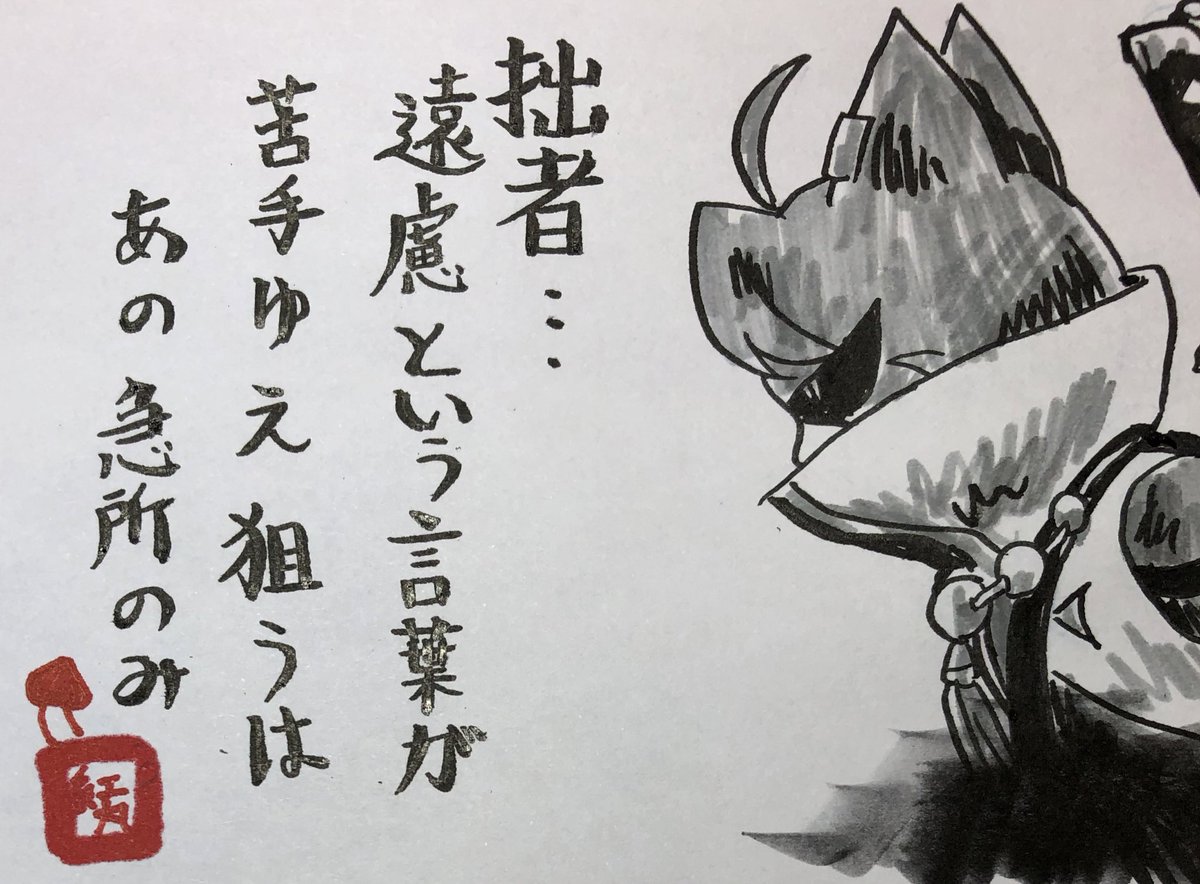 拙者…
遠慮という言葉が
苦手ゆえ狙うは
あの急所のみ